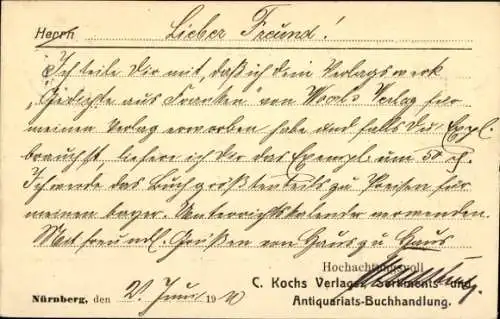 Herrn Lieber Freund!
Ich teile Dir mit, daß ich dein Verlagswerk
„Gedichte aus Franken" von Verlag für
meinen Verlag erworben habe und falls du Expl.
brauchst liefere ich dir das Exempl. um 50 ₰.
Ich werde das Buch größtenteils zu Preisen für
meinen bayer. Unterrichtskalender verwenden.
Mit freundl. Grüßen von Haus zu Haus
Hochachtungsvoll
C. Kochs Verlags-, Sortiments- und
Antiquariats-Buchhandlung.
Nürnberg, den 2. Juni 1910